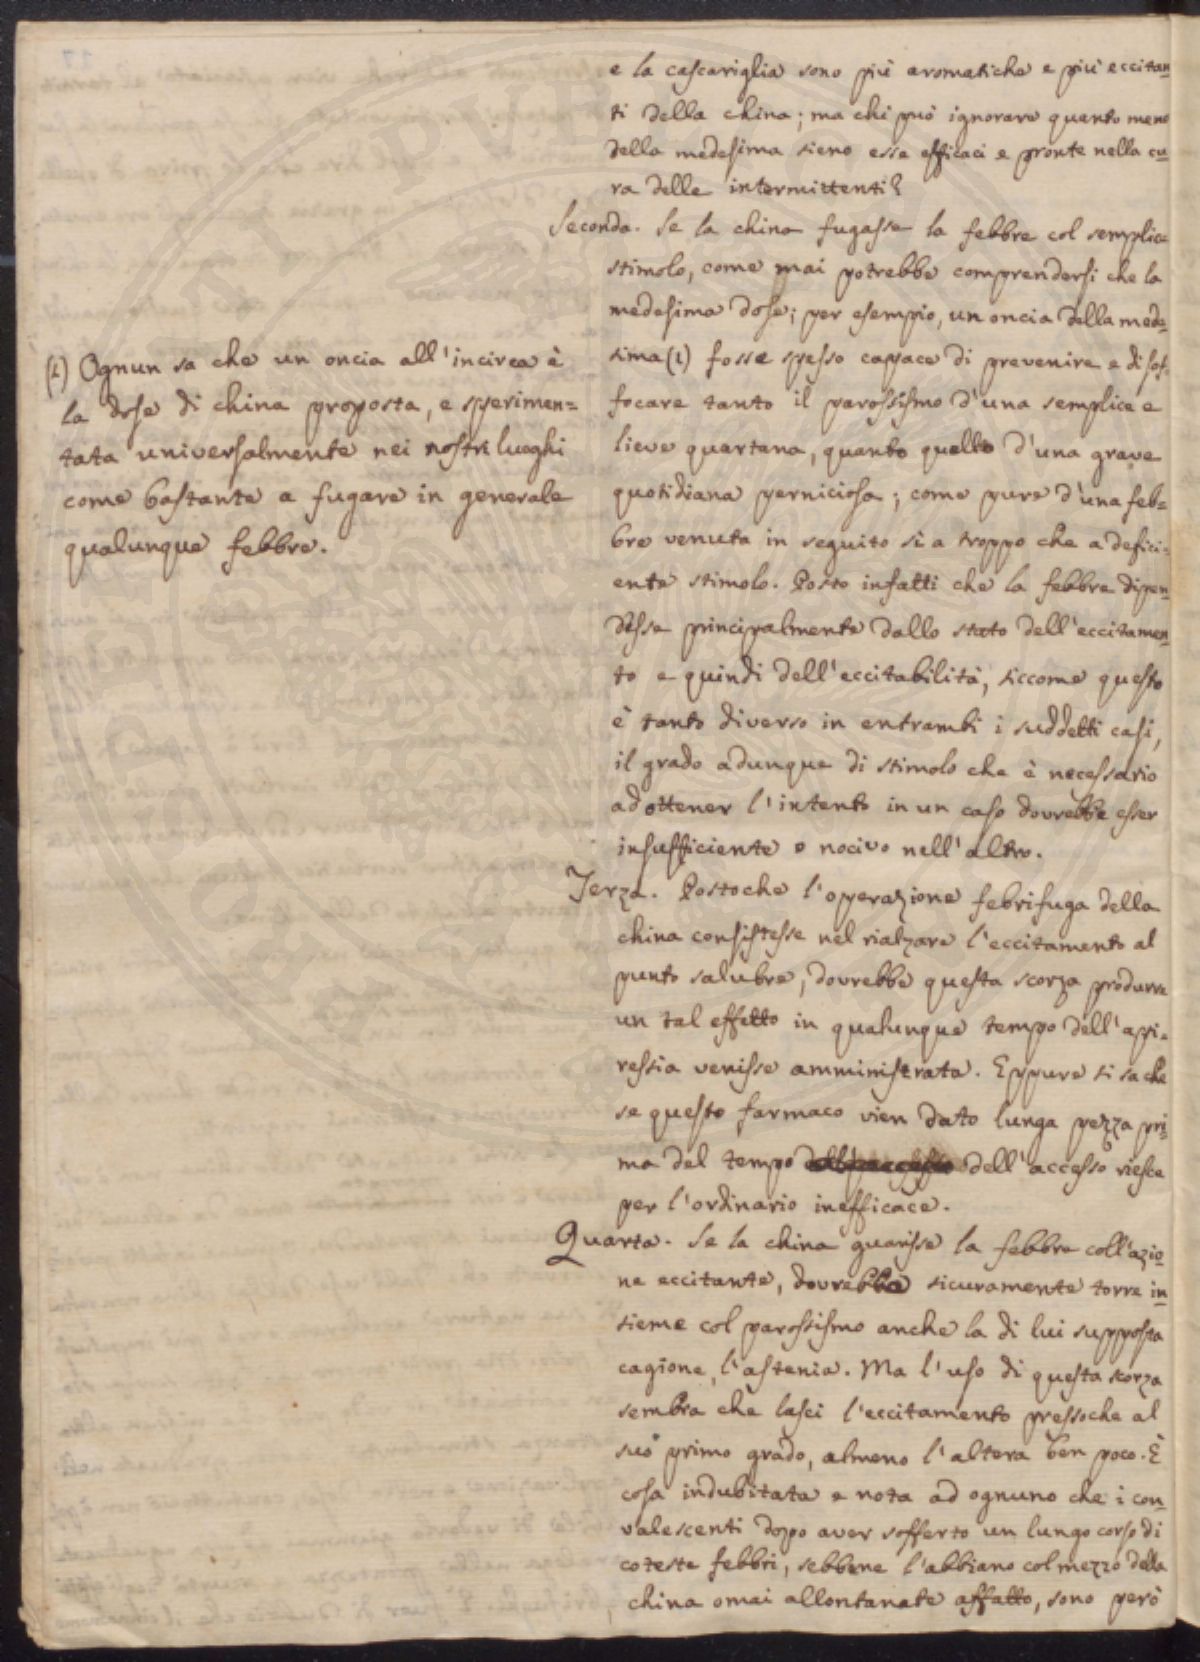 e la cascariglia sono più aromatiche e più eccitan
ti della china; ma chi può ignorare quanto meno
della medesima sieno esse efficaci e pronte nella cu
ra delle intermittenti?
Seconda. Se la china fugasse la febbre col semplice
stimolo, come mai potrebbe comprendersi che la
medesima dose; per esempio, un oncia della mede=
sima (1) fosse spesso capace di prevenire e di sof=
focare tanto il parossismo d'una semplice e
lieve quartana, quanto quello d'una grave
quotidiana perniciosa; come pure d'una feb=
bre venuta in seguito sì a troppo che a defici=
ente stimolo. Posto infatti che la febbre dipen
desse principalmente dallo stato dell'eccitamen
to e quindi dell'eccitabilità, siccome questo
è tanto diverso in entrambi i suddetti casi,
il grado adunque di stimolo che è necessario
ad ottener l'intento in un caso dovrebbe esser
insufficiente o nocivo nell'altro.
Terza. Postoche l'operazione febrifuga della
china consistesse nel rialzare l'eccitamento al
punto salubre, dovrebbe questa scorza produrre
un tal effetto in qualunque tempo dell'api=
ressia venisse amministrata. Eppure si sa che
se questo farmaco vien dato lunga pezza pri
ma del tempo dell'accesso riesce
per l'ordinario inefficace.
Quarta. Se la china guarisse la febbre coll'azio
ne eccitante, dovrebbe sicuramente torre in
sieme col parossismo anche la di lui supposta
cagione, l'astenia. Ma l'uso di questa scorza
sembra che lasci l'eccitamento pressoche al
suo primo grado, almeno l'altera ben poco. È
cosa indubitata e nota ad ognuno che i con
valescenti dopo aver sofferto un lungo corso di
coteste febbri, sebbene l'abbiano col mezzo della
china omai allontanate affatto, sono però
(1) Ognun sa che un oncia all'incirca è
la dose di china proposta, e sperimen=
tata universalmente nei nostri luoghi
come bastante a fugare in generale
qualunque febbre.